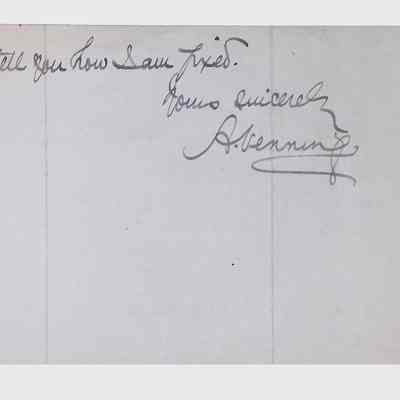 tell you how I am fixed.
Yours sincerely
A. Venning